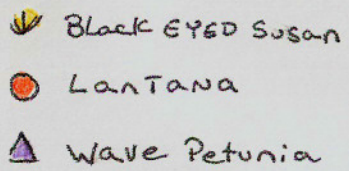 Black EYED Susan
LanTana
Wave Petunia